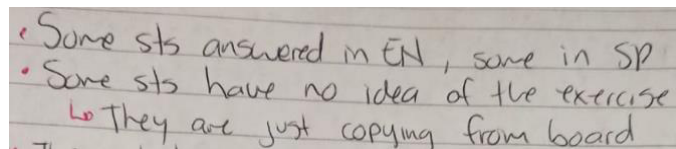 • Some sts answered in EN, some in SP
• Some sts have no idea of the exercise
↳ They are just copying from board